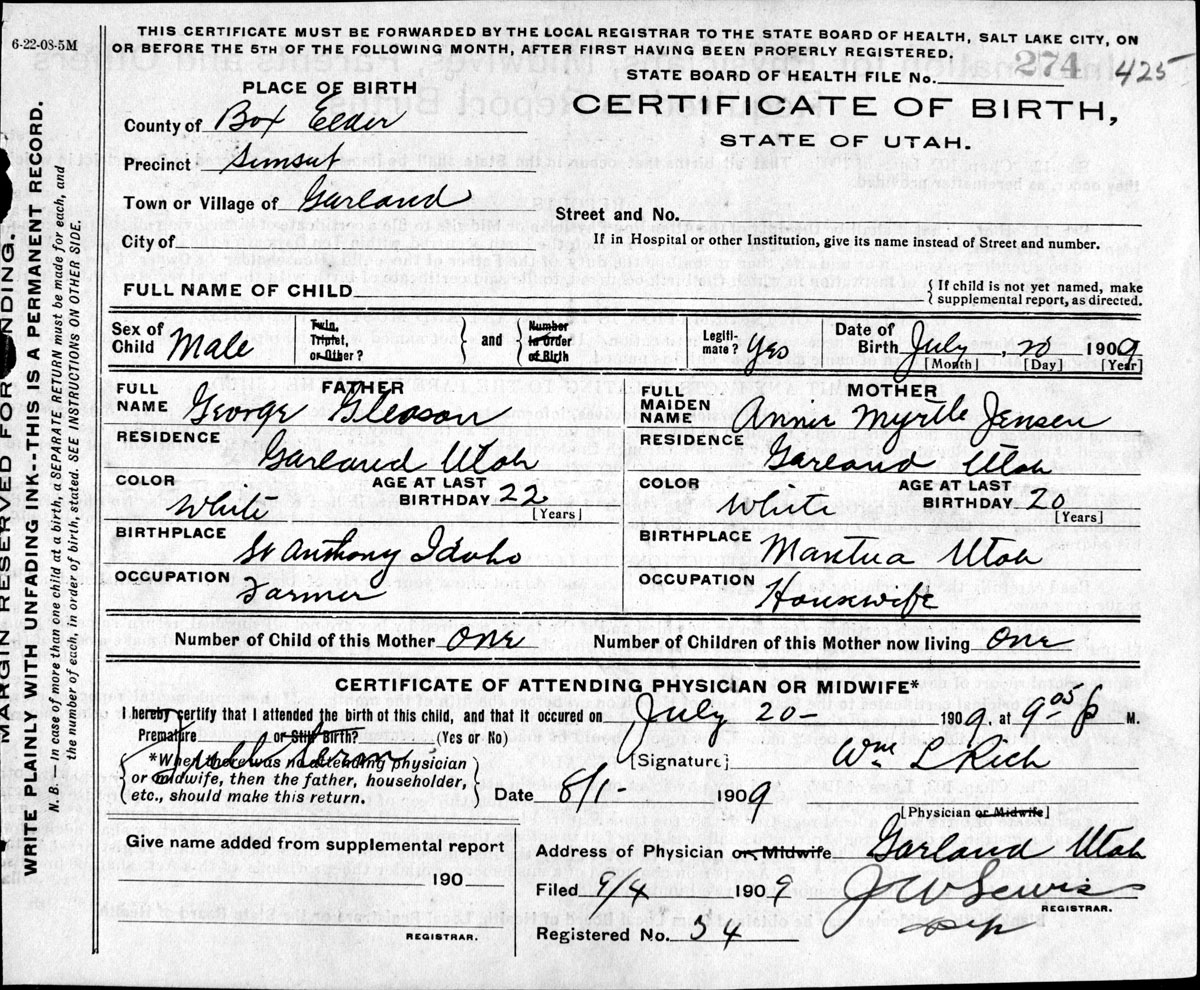 6-22-08-5M
THIS CERTIFICATE MUST BE FORWARDED BY THE LOCAL REGISTRAR TO THE STATE BOARD OF HEALTH, SALT LAKE CITY, ON
OR BEFORE THE 5TH OF THE FOLLOWING MONTH, AFTER FIRST HAVING BEEN PROPERLY REGISTERED.
STATE BOARD OF HEALTH FILE No. 274 425
PLACE OF BIRTH
CERTIFICATE OF BIRTH,
STATE OF UTAH.
County of Box Elder
Precinct Sunset
Town or Village of Garland
Street and No.
City of
If in Hospital or other Institution, give its name instead of Street and number.
FULL NAME OF CHILD
{ If child is not yet named, make
supplemental report, as directed.
Sex of Child Male
Twin, Triplet, or Other? } and { Number in Order of Birth
Legiti-mate? Yes
Date of Birth July, 20 1909
[Month] [Day] [Year]
FATHER
FULL NAME George Gleason
MOTHER
FULL MAIDEN NAME Annie Myrtle Jensen
RESIDENCE Garland Utah
RESIDENCE Garland Utah
COLOR White
AGE AT LAST BIRTHDAY 22
[Years]
COLOR White
AGE AT LAST BIRTHDAY 20
[Years]
BIRTHPLACE St Anthony Idaho
BIRTHPLACE Mantua Utah
OCCUPATION Farmer
OCCUPATION Housewife
Number of Child of this Mother one
Number of Children of this Mother now living one
CERTIFICATE OF ATTENDING PHYSICIAN OR MIDWIFE*
I hereby certify that I attended the birth of this child, and that it occured on July 20- 1909, at 9:05 p M.
Premature or Still Birth? (Yes or No)
Full term
[Signature] Wm L Rich
{ *When there was no attending physician
or midwife, then the father, householder,
etc., should make this return. }
Date 8/1- 1909
[Physician or Midwife]
Give name added from supplemental report
190
REGISTRAR.
Address of Physician or Midwife Garland Utah
Filed 9/4 1909 J W Lewis
REGISTRAR.
Registered No. 54
Dep
MARGIN RESERVED FOR NDING.
WRITE PLAINLY WITH UNFADING INK--THIS IS A PERMANENT RECORD.
N. B. In case of more than one child at a birth, a SEPARATE RETURN must be made for each, and
the number of each, in order of birth, stated. SEE INSTRUCTIONS ON OTHER SIDE.